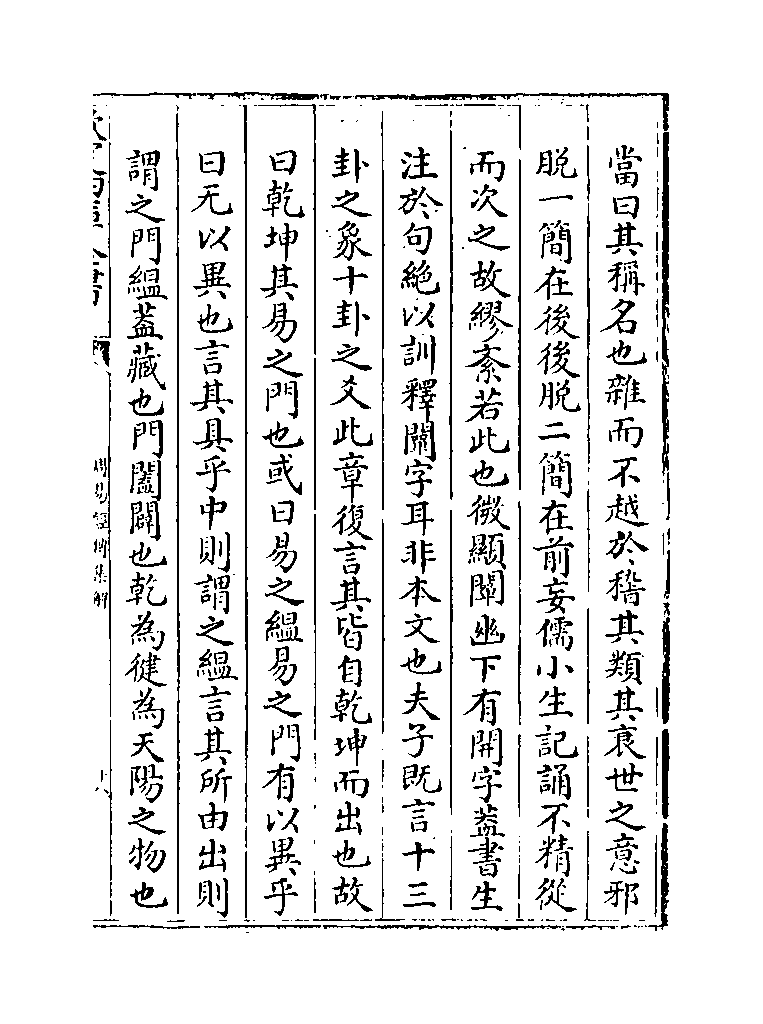 當曰其稱名也雜而不越於稽其類其衰世之意邪
脫一簡在後後脫二簡在前妄儒小生記誦不精從
而次之故繆紊若此也微顯闡幽下有開字葢書生
注於句絶以訓釋闡字耳非本文也夫子既言十三
卦之象十卦之爻此章復言其皆自乾坤而出也故
曰乾坤其易之門也或曰易之緼易之門有以異乎
曰无以異也言其具乎中則謂之緼言其所由出則
謂之門緼葢藏也門闔闢也乾為健為天陽之物也
周易經傳集解